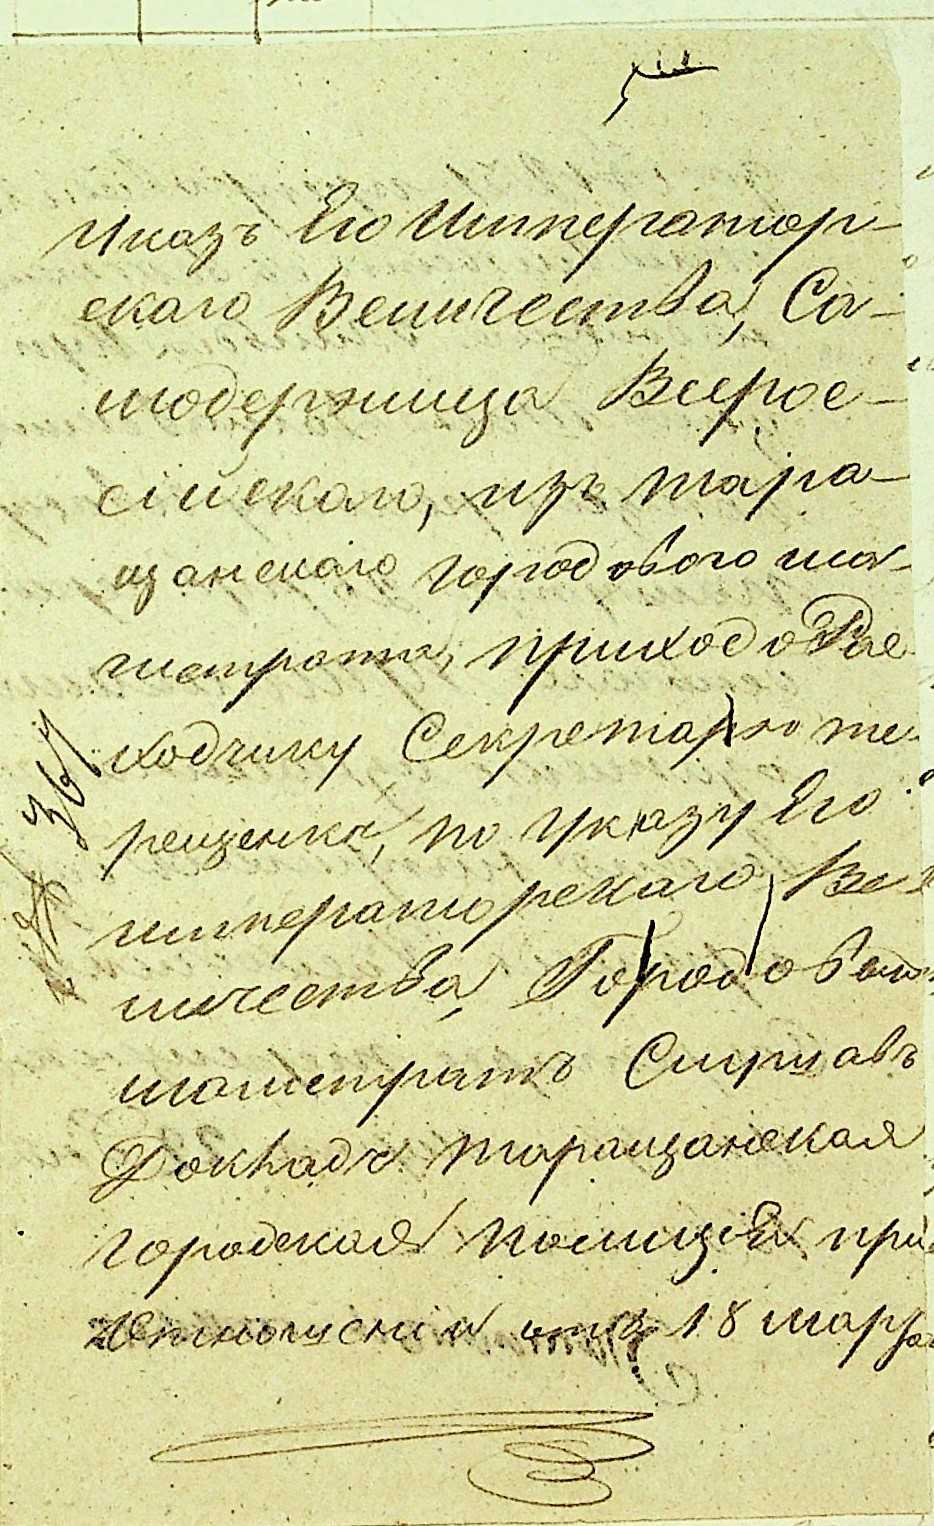 Указъ Его Император-
скаго Величества, Са-
модержица Всерос-
сійскаго, изъ Тара-
щанскаго городоваго ма-
гистрата, приходорас-
ходчику Секретарю Те-
рещенку, по указу Его
императорскаго Ве-
личества, Городовой
магистратъ Слушавъ
Докладъ Таращанская
городская полиція при
отношеніи отъ 18 марта
№ 367